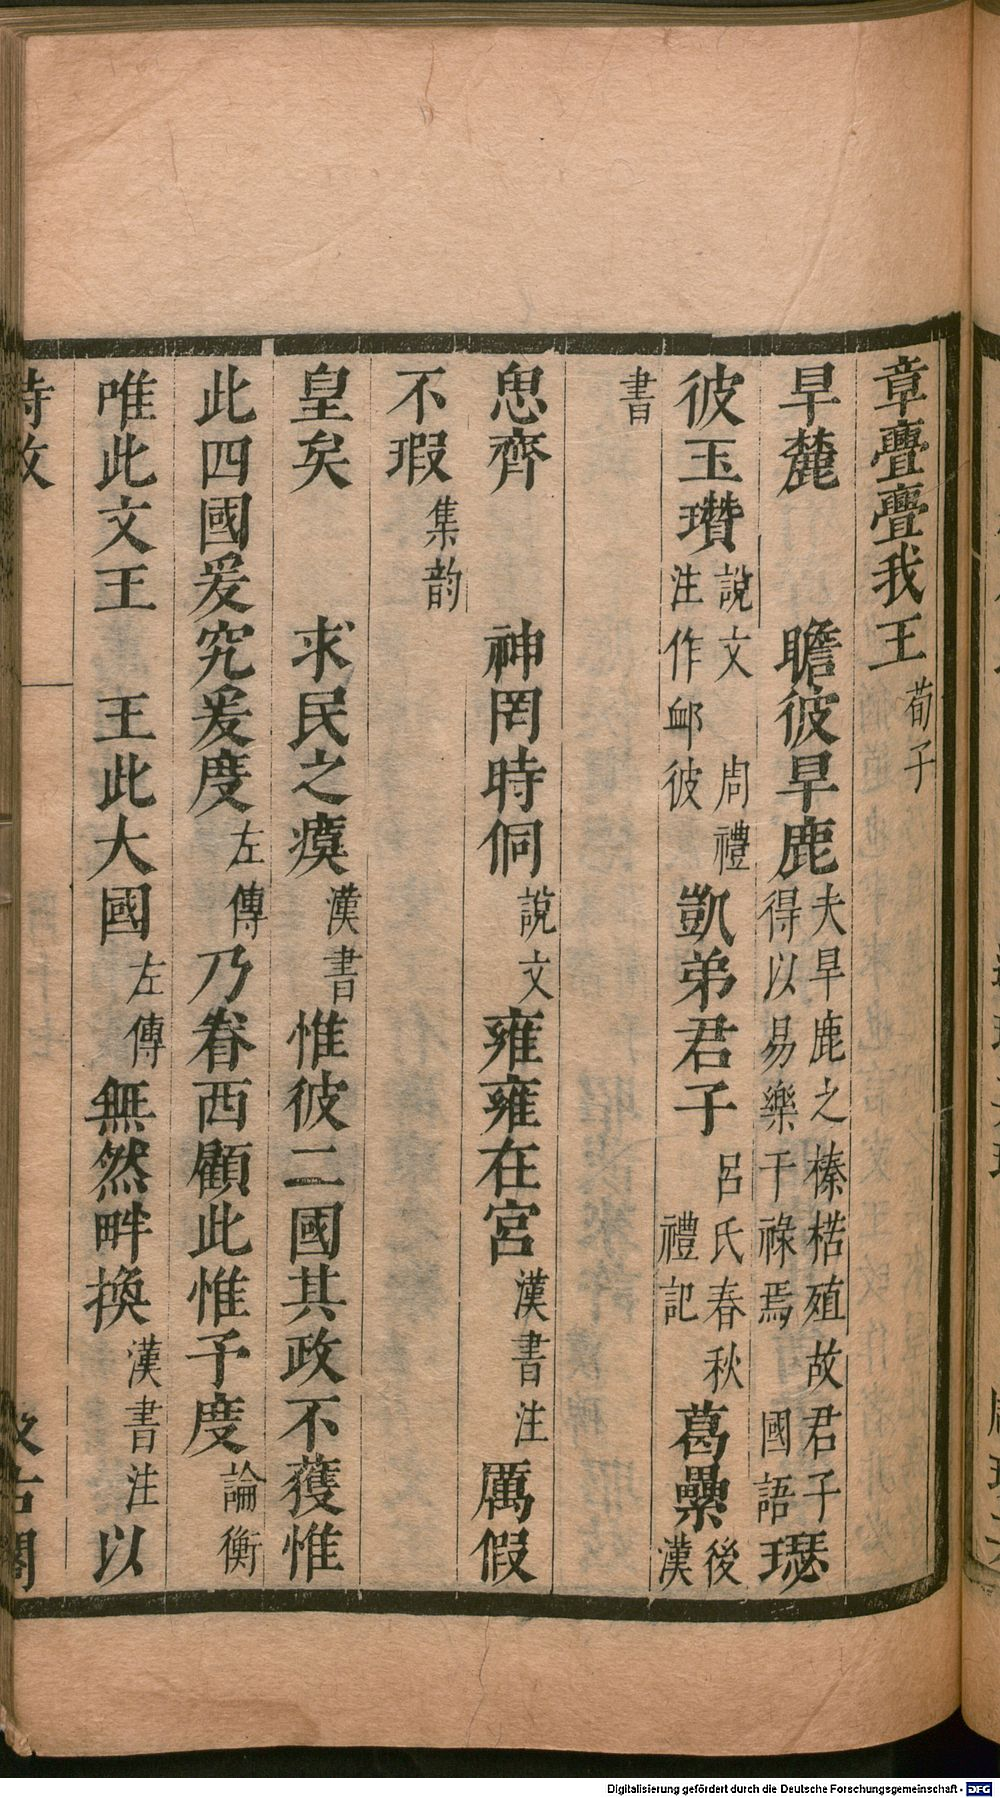 章亹亹我王荀子
旱麓　瞻彼旱鹿夫旱鹿之榛楛殖故君子得以易樂干祿焉國語瑟
彼玉瓚說文　周禮注作卹彼凱弟君子呂氏春秋禮記葛櫐後漢
書
思齊　神罔時侗說文雍雍在宮漢書注厲假
不瑕集韵
皇矣　求民之瘼漢書惟彼二國其政不獲惟
此四國爰究爰度左傳乃眷西顧此惟予度論衡
唯此文王　王此大國左傳無然畔換漢書注以
詩攷　汲古閣
Digitalisierung gefördert durch die Deutsche Forschungsgemeinschaft - DFG